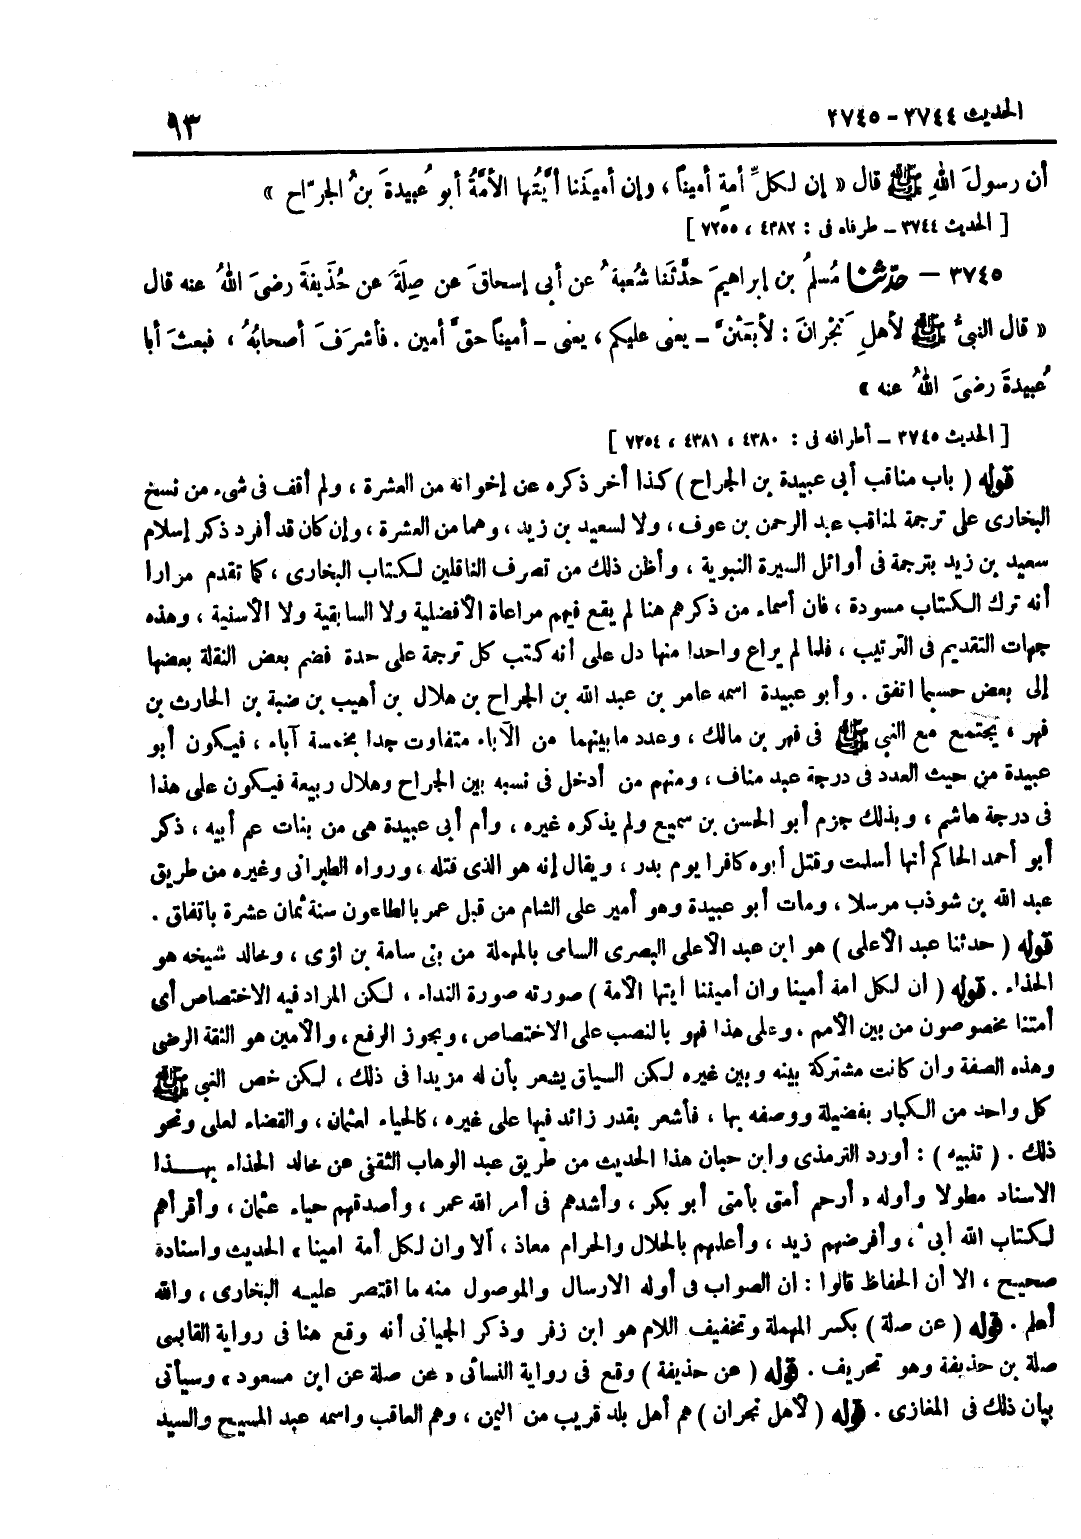 الحديث ٣٧٤٤ - ٣٧٤٥
٩٣
أن رسولَ اللهِ ﷺ قال « إن لكلِّ أمةٍ أميناً ، وإن أمينَنا أيَّتُها الأمَّةُ أبو عُبيدةَ بنُ الجرّاح »
[ الحديث ٣٧٤٤ ـ طرفاه فى : ٤٣٨٢ ، ٧٢٥٥ ]
٣٧٤٥ — حدّثنا مُسلمُ بن إبراهيمَ حدَّثَنا شُعبةُ عن أبى إسحاقَ عن صِلَةَ عن حُذَيفةَ رضىَ اللهُ عنه قال
« قال النبىُّ ﷺ لأهلِ نَجْرانَ : لأبعَثنَّ ـ يعنى عليكم ، يعنى ـ أميناً حقَّ أمين . فأشرَفَ أصحابُهُ ، فبعثَ أبا
عُبيدةَ رضىَ اللهُ عنه »
[ الحديث ٣٧٤٥ ـ أطرافه فى : ٤٣٨٠ ، ٤٣٨١ ، ٧٢٥٤ ]
قوله ( باب مناقب أبى عبيدة بن الجراح ) كذا أخر ذكره عن إخوانه من العشرة ، ولم أقف فى شىء من نسخ
البخارى على ترجمة لمناقب عبد الرحمن بن عوف ، ولا لسعيد بن زيد ، وهما من العشرة ، وإن كان قد أفرد ذكر إسلام
سعيد بن زيد بترجمة فى أوائل السيرة النبوية ، وأظن ذلك من تصرف الناقلين لكتاب البخارى ، كما تقدم مرارا
أنه ترك الكتاب مسودة ، فان أسماء من ذكرهم هنا لم يقع فيهم مراعاة الأفضلية ولا السابقية ولا الأسنية ، وهذه
جهات التقديم فى الترتيب ، فلما لم يراع واحدا منها دل على أنه كتب كل ترجمة على حدة فضم بعض النقلة بعضها
إلى بعض حسبما اتفق . وأبو عبيدة اسمه عامر بن عبد الله بن الجراح بن هلال بن أهيب بن ضبة بن الحارث بن
فهر ، يجتمع مع النبي ﷺ فى فهر بن مالك ، وعدد ما بينهما من الآباء متفاوت جدا بخمسة آباء ، فيكون أبو
عبيدة من حيث العدد فى درجة عبد مناف ، ومنهم من أدخل فى نسبه بين الجراح وهلال ربيعة فيكون على هذا
فى درجة هاشم ، وبذلك جزم أبو الحسن بن سميع ولم يذكره غيره ، وأم أبى عبيدة هى من بنات عم أبيه ، ذكر
أبو أحمد الحاكم أنها أسلمت وقتل أبوه كافرا يوم بدر ، ويقال إنه هو الذى قتله ، ورواه الطبرانى وغيره من طريق
عبد الله بن شوذب مرسلا ، ومات أبو عبيدة وهو أمير على الشام من قبل عمر بالطاعون سنة ثمان عشرة باتفاق .
قوله ( حدثنا عبد الأعلى ) هو ابن عبد الأعلى البصرى السامى بالمهملة من بنى سامة بن لؤى ، وخالد شيخه هو
الحذاء . قوله ( ان لكل أمة أمينا وان أميننا أيتها الأمة ) صورته صورة النداء ، لكن المراد فيه الاختصاص أى
أمتنا مخصوصون من بين الأمم . وعلى هذا فهو بالنصب على الاختصاص ، ويجوز الرفع ، والأمين هو الثقة الرضى
وهذه الصفة وان كانت مشتركة بينه وبين غيره لكن السياق يشعر بأن له مزيدا فى ذلك ، لكن خص النبي ﷺ
كل واحد من الكبار بفضيلة ووصفه بها ، فأشعر بقدر زائد فيها على غيره ، كالحياء لعثمان ، والقضاء لعلى ونحو
ذلك . ( تنبيه ) : أورد الترمذى وابن حبان هذا الحديث من طريق عبد الوهاب الثقفى عن خالد الحذاء بهـذا
الاسناد مطولا وأوله « أرحم أمتى بأمتى أبو بكر ، وأشدهم فى أمر الله عمر ، وأصدقهم حياء عثمان ، وأقرأهم
لكتاب الله أبىّ ، وأفرضهم زيد ، وأعلمهم بالحلال والحرام معاذ ، ألا وان لكل أمة امينا » الحديث واسناده
صحيح ، الا أن الحفاظ قالوا : ان الصواب فى أوله الارسال والموصول منه ما اقتصر عليه البخارى ، والله
أعلم . قوله ( عن صلة ) بكسر المهملة وتخفيف اللام هو ابن زفر وذكر الجيانى أنه وقع هنا فى رواية القابسى
صلة بن حذيفة وهو تحريف . قوله ( عن حذيفة ) وقع فى رواية النسائى « عن صلة عن ابن مسعود » وسيأتى
بيان ذلك فى المغازى . قوله ( لأهل نجران ) هم أهل بلد قريب من اليمن ، وهم العاقب واسمه عبد المسيح والسيد